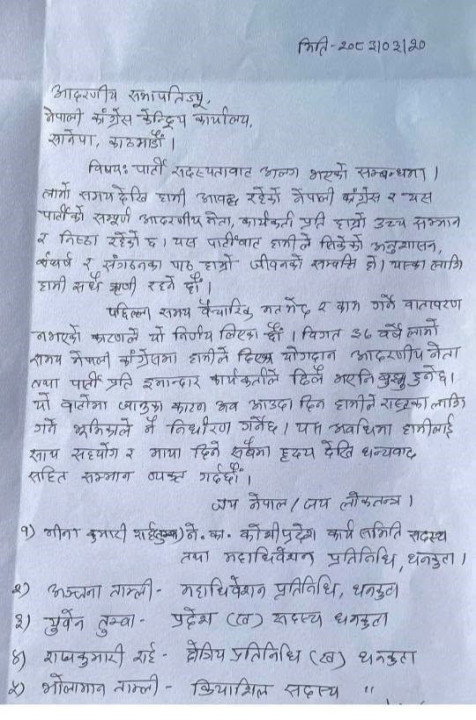 मिति-२०८३/०३/२०
आदरणीय सभापतिज्यू,
नेपाली कांग्रेस केन्द्रिय कार्यालय,
सानेपा, काठमाडौं ।
विषय: पार्टी सदस्यताबाट अलग भएको सम्बन्धमा ।
लामो समय देखि हामी आवद्ध रहेको नेपाली कांग्रेस र यस
पार्टीको सम्पूर्ण आदरणीय नेता, कार्यकर्ता प्रति हाम्रो उच्च सम्मान
र निष्ठा रहेको छ। यस पार्टीबाट हामीले सिकेको अनुशासन,
संघर्ष र संगठनका पाठ हाम्रो जीवनको सम्पत्ति हो। यसका लागि
हामी सधैं ऋणी रहने छौं ।
पछिल्ला समय वैचारिक मतभेद र काम गर्ने वातावरण
नभएको कारणले यो निर्णय लिएका छौं । विगत ३६ वर्षे लामो
समय नेपाली कांग्रेसमा हामीले दिएको योगदान आदरणीय नेता
तथा पार्टी प्रति इमान्दार कार्यकर्ताले ढिलै भएनि बुझ्नु हुनेछ।
यो बाटोमा कारण अब आउदा दिन हामीले राष्ट्रका लागि
गर्ने भूमिकाले नै निर्धारण गर्नेछ। यस अवधिमा हामीलाई
साथ सहयोग र माया दिने सबैमा हृदय देखि धन्यवाद
सहित सम्मान व्यक्त गर्दछौं।
जय नेपाल / जय लोकतन्त्र ।
१) मीना कुमारी राई ने. का. कोशी प्रदेश कार्य समिति सदस्य
तथा महाधिवेशन प्रतिनिधि, धनकुटा ।
२) अञ्जना ताम्ली - महाधिवेशन प्रतिनिधि, धनकुटा
३) युर्वेन तुम्वा - प्रदेश (ख) सदस्य धनकुटा
४) राजकुमारी राई - क्षेत्रिय प्रतिनिधि (ख) धनकुटा
५) भोलामान ताम्ली - क्रियाशिल सदस्य "